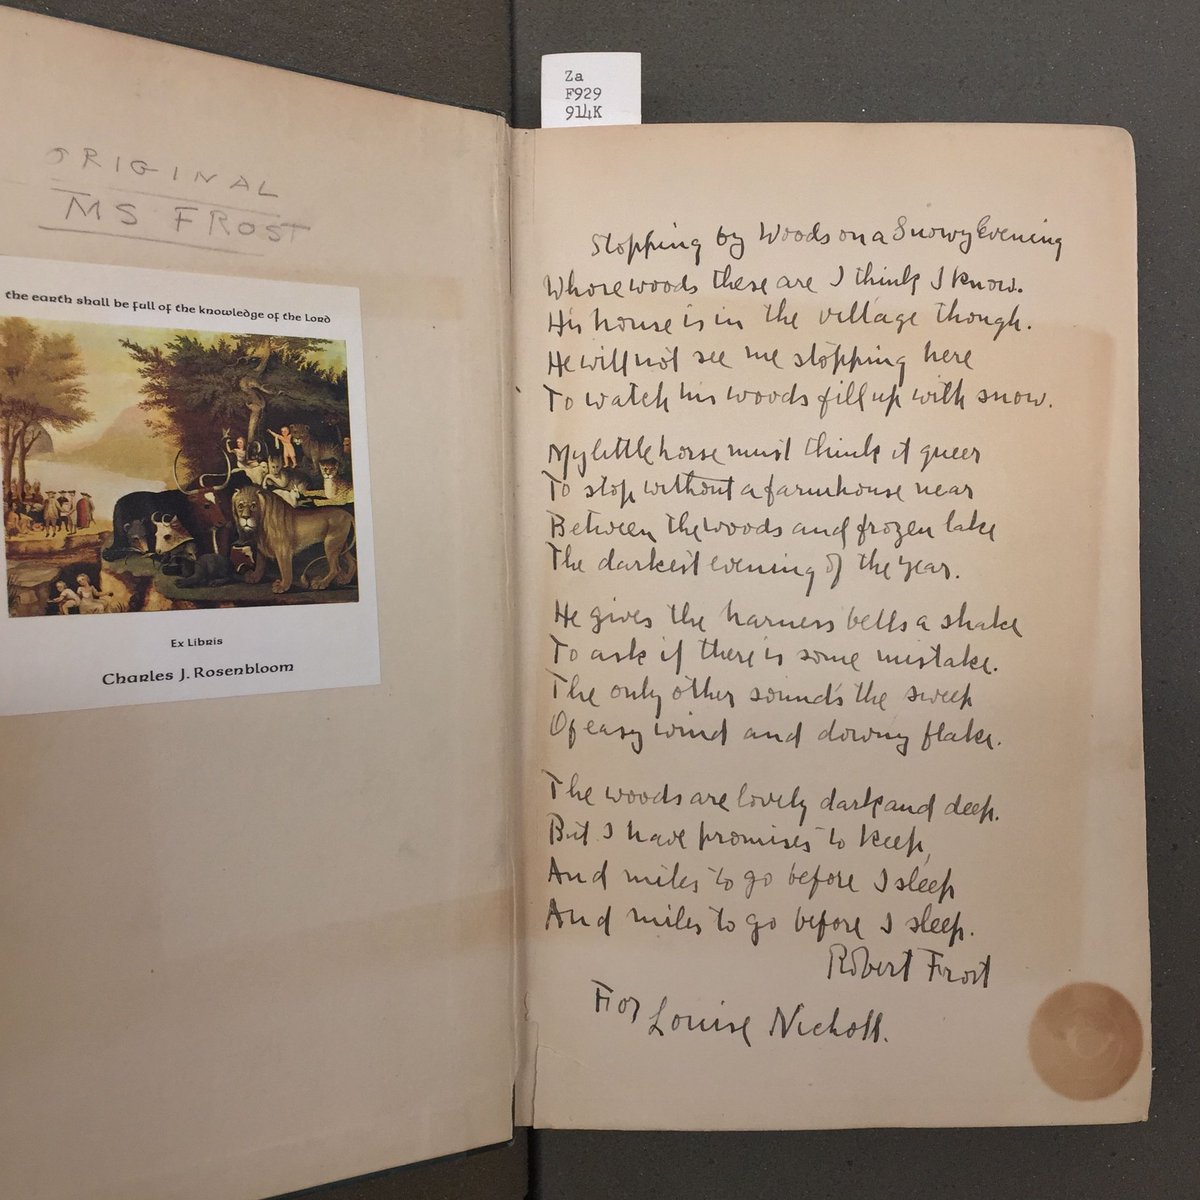 ORIGINAL
MS FROST
the earth shall be full of the knowledge of the Lord
Ex Libris
Charles J. Rosenbloom
Za
F929
914K
Stopping by Woods on a Snowy Evening
Whose woods these are I think I know.
His house is in the village though.
He will not see me stopping here
To watch his woods fill up with snow.
My little horse must think it queer
To stop without a farmhouse near
Between the woods and frozen lake
The darkest evening of the year.
He gives the harness bells a shake
To ask if there is some mistake.
The only other sound's the sweep
Of easy wind and downy flake.
The woods are lovely dark and deep.
But I have promises to keep,
And miles to go before I sleep
And miles to go before I sleep.
Robert Frost
For Louise Nicholl.